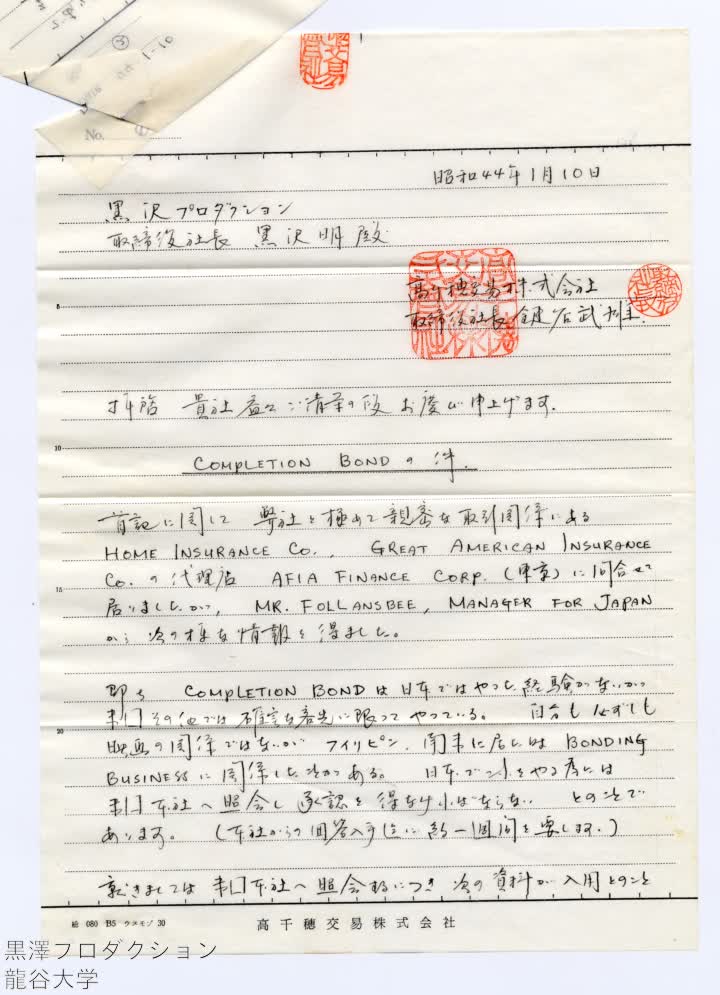 昭和44年1月10日
黒沢プロダクション
取締役社長 黒沢明殿
高千穂交易株式会社
取締役社長 鍵谷武雄
拝啓 貴社益々ご清栄の段 お慶び申上げます。
COMPLETION BOND の件.
首記に関して 弊社と極めて親密な取引関係にある
HOME INSURANCE CO., GREAT AMERICAN INSURANCE
CO. の代理店 AFIA FINANCE CORP. (東京) に問合せて
居りましたが, MR. FOLLANSBEE, MANAGER FOR JAPAN
から次の様な情報を得ました。
即ち COMPLETION BOND は日本ではやった経験がないが
米国その他では確実な客先に限ってやっている。 自分も必ずしも
映画の関係ではないが フィリピン, 南米に居た時は BONDING
BUSINESS に関係した事がある。 日本でこれをやる為には
米国本社へ照会し承認を得なければならない とのことで
あります。 (本社からの回答入手迄に約一週間を要します.)
就きましては 米国本社へ照会するにつき 次の資料が入用とのこと
5
10
15
20
袷 080 B5 ウスモゾ 30
高千穂交易株式会社
No.
黒澤プロダクション
龍谷大学